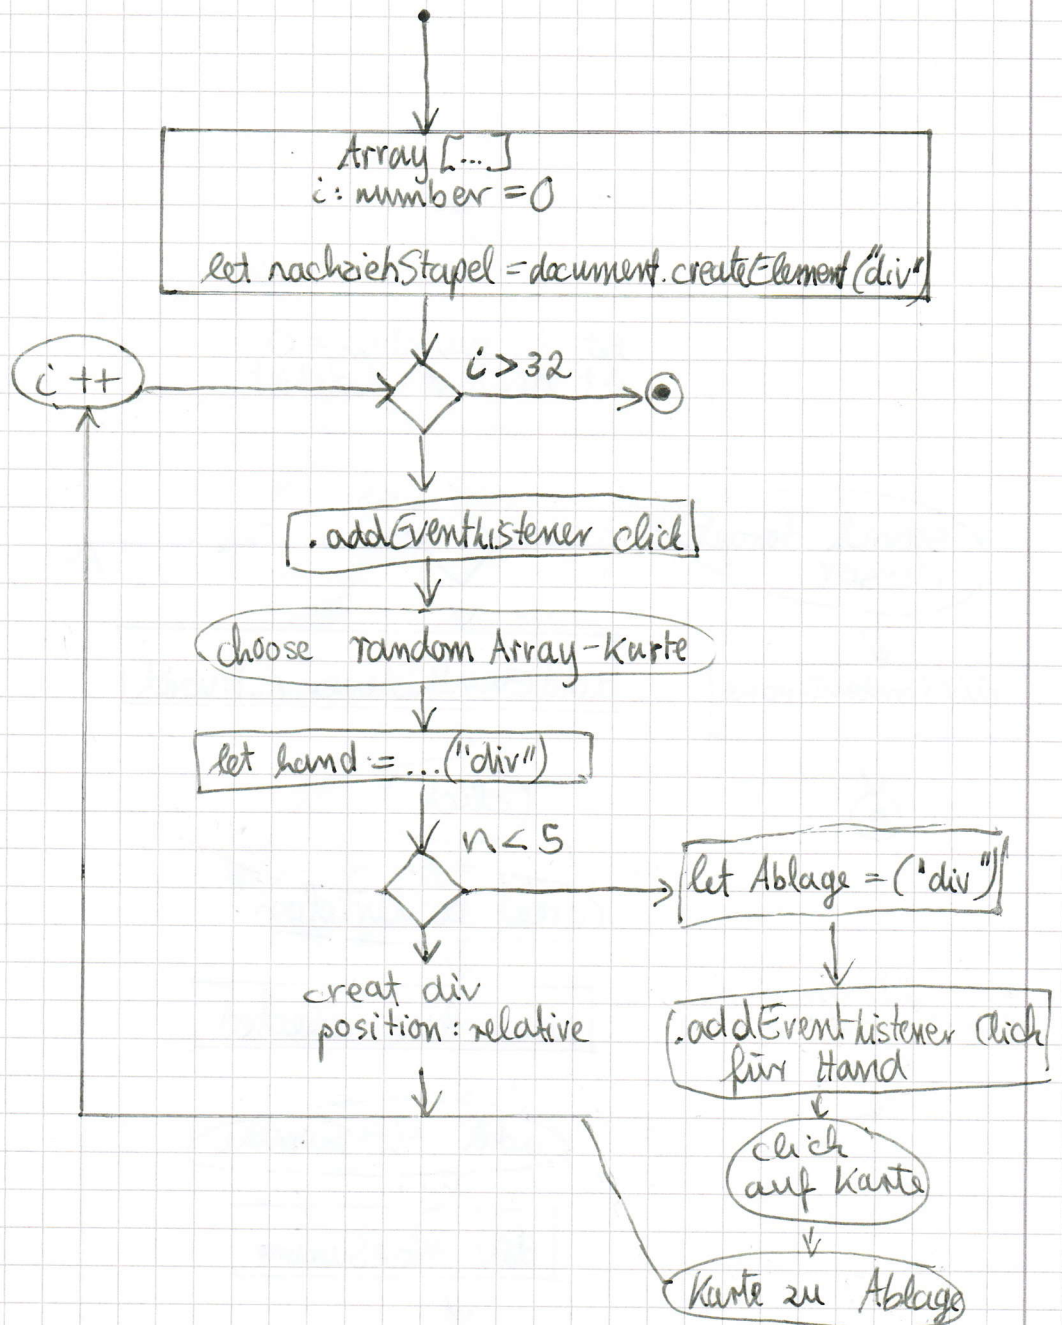 Array [...]
i: number = 0
let nachziehStapel = document.createElement("div")
i > 32
i ++
.addEventListener click
choose random Array-Karte
let hand = ...("div")
n < 5
let Ablage = ("div")
creat div
position: relative
.addEventListener Click
für Hand
click
auf Karte
Karte zu Ablage